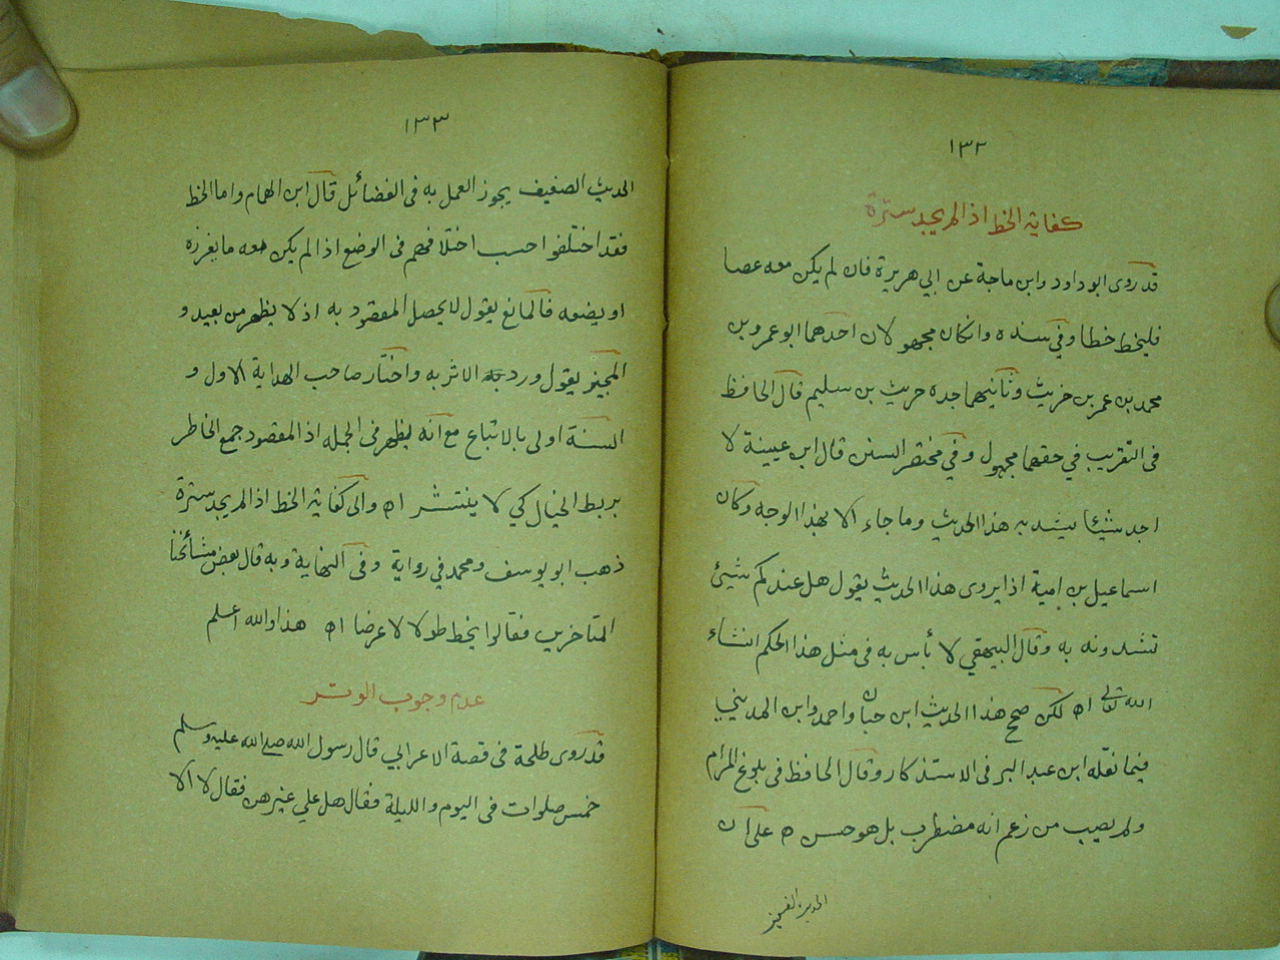 ١٣٢
كفاية الخط اذا لم يجد سترة
قد روى ابو داود وابن ماجة عن ابي هريرة فان لم يكن معه عصا
فليخط خطا وفي سنده وانكان مجهولان احدهما ابو عمرو بن
محمد بن عمر بن حريث وثانيهما جده حريث بن سليم قال الحافظ
في التقريب في حقهما مجهول وفي مختصر السنن قال ابن عيينة لا
اجد شيئا يشد به هذا الحديث وما جاء الا بهذا الوجه وكان
اسماعيل بن امية اذا يروى هذا الحديث يقول هل عندكم شيئ
تشدونه به وقال البيهقي لا بأس به في مثل هذا الحكم انشاء
الله تعالى اه لكن صحح هذا الحديث ابن حبان واحمد وابن المديني
فيما نقله ابن عبد البر فى الاستذكار وقال الحافظ فى بلوغ المرام
ولم يصب من زعم انه مضطرب بل هو حسن ه على ان
الحديث الضعيف
١٣٣
الحديث الضعيف يجوز العمل به فى الفضائل قال ابن الهمام واما الخط
فقد اختلفوا حسب اختلافهم فى الوضع اذا لم يكن معه ما يغرزه
او يضعه فالمانع يقول لا يحصل المقصود به اذ لا يظهر من بعيد و
المجيز يقول ورد الاثر به واختار صاحب الهداية الاول و
السنة اولى بالاتباع مع انه يظهر فى الجملة اذ المقصود جمع الخاطر
بربط الخيال كي لا ينتشر اه والى كفاية الخط اذا لم يجد سترة
ذهب ابو يوسف ومحمد في رواية وفى النهاية وبه قال بعض مشائخنا
المتاخرين فقالوا يخط طولا لا عرضا اه هذا والله اعلم
عدم وجوب الوتر
قد روى طلحة فى قصة الاعرابي قال رسول الله صلى الله عليه وسلم
خمس صلوات فى اليوم والليلة فقال هل علي غيرهن فقال لا الا